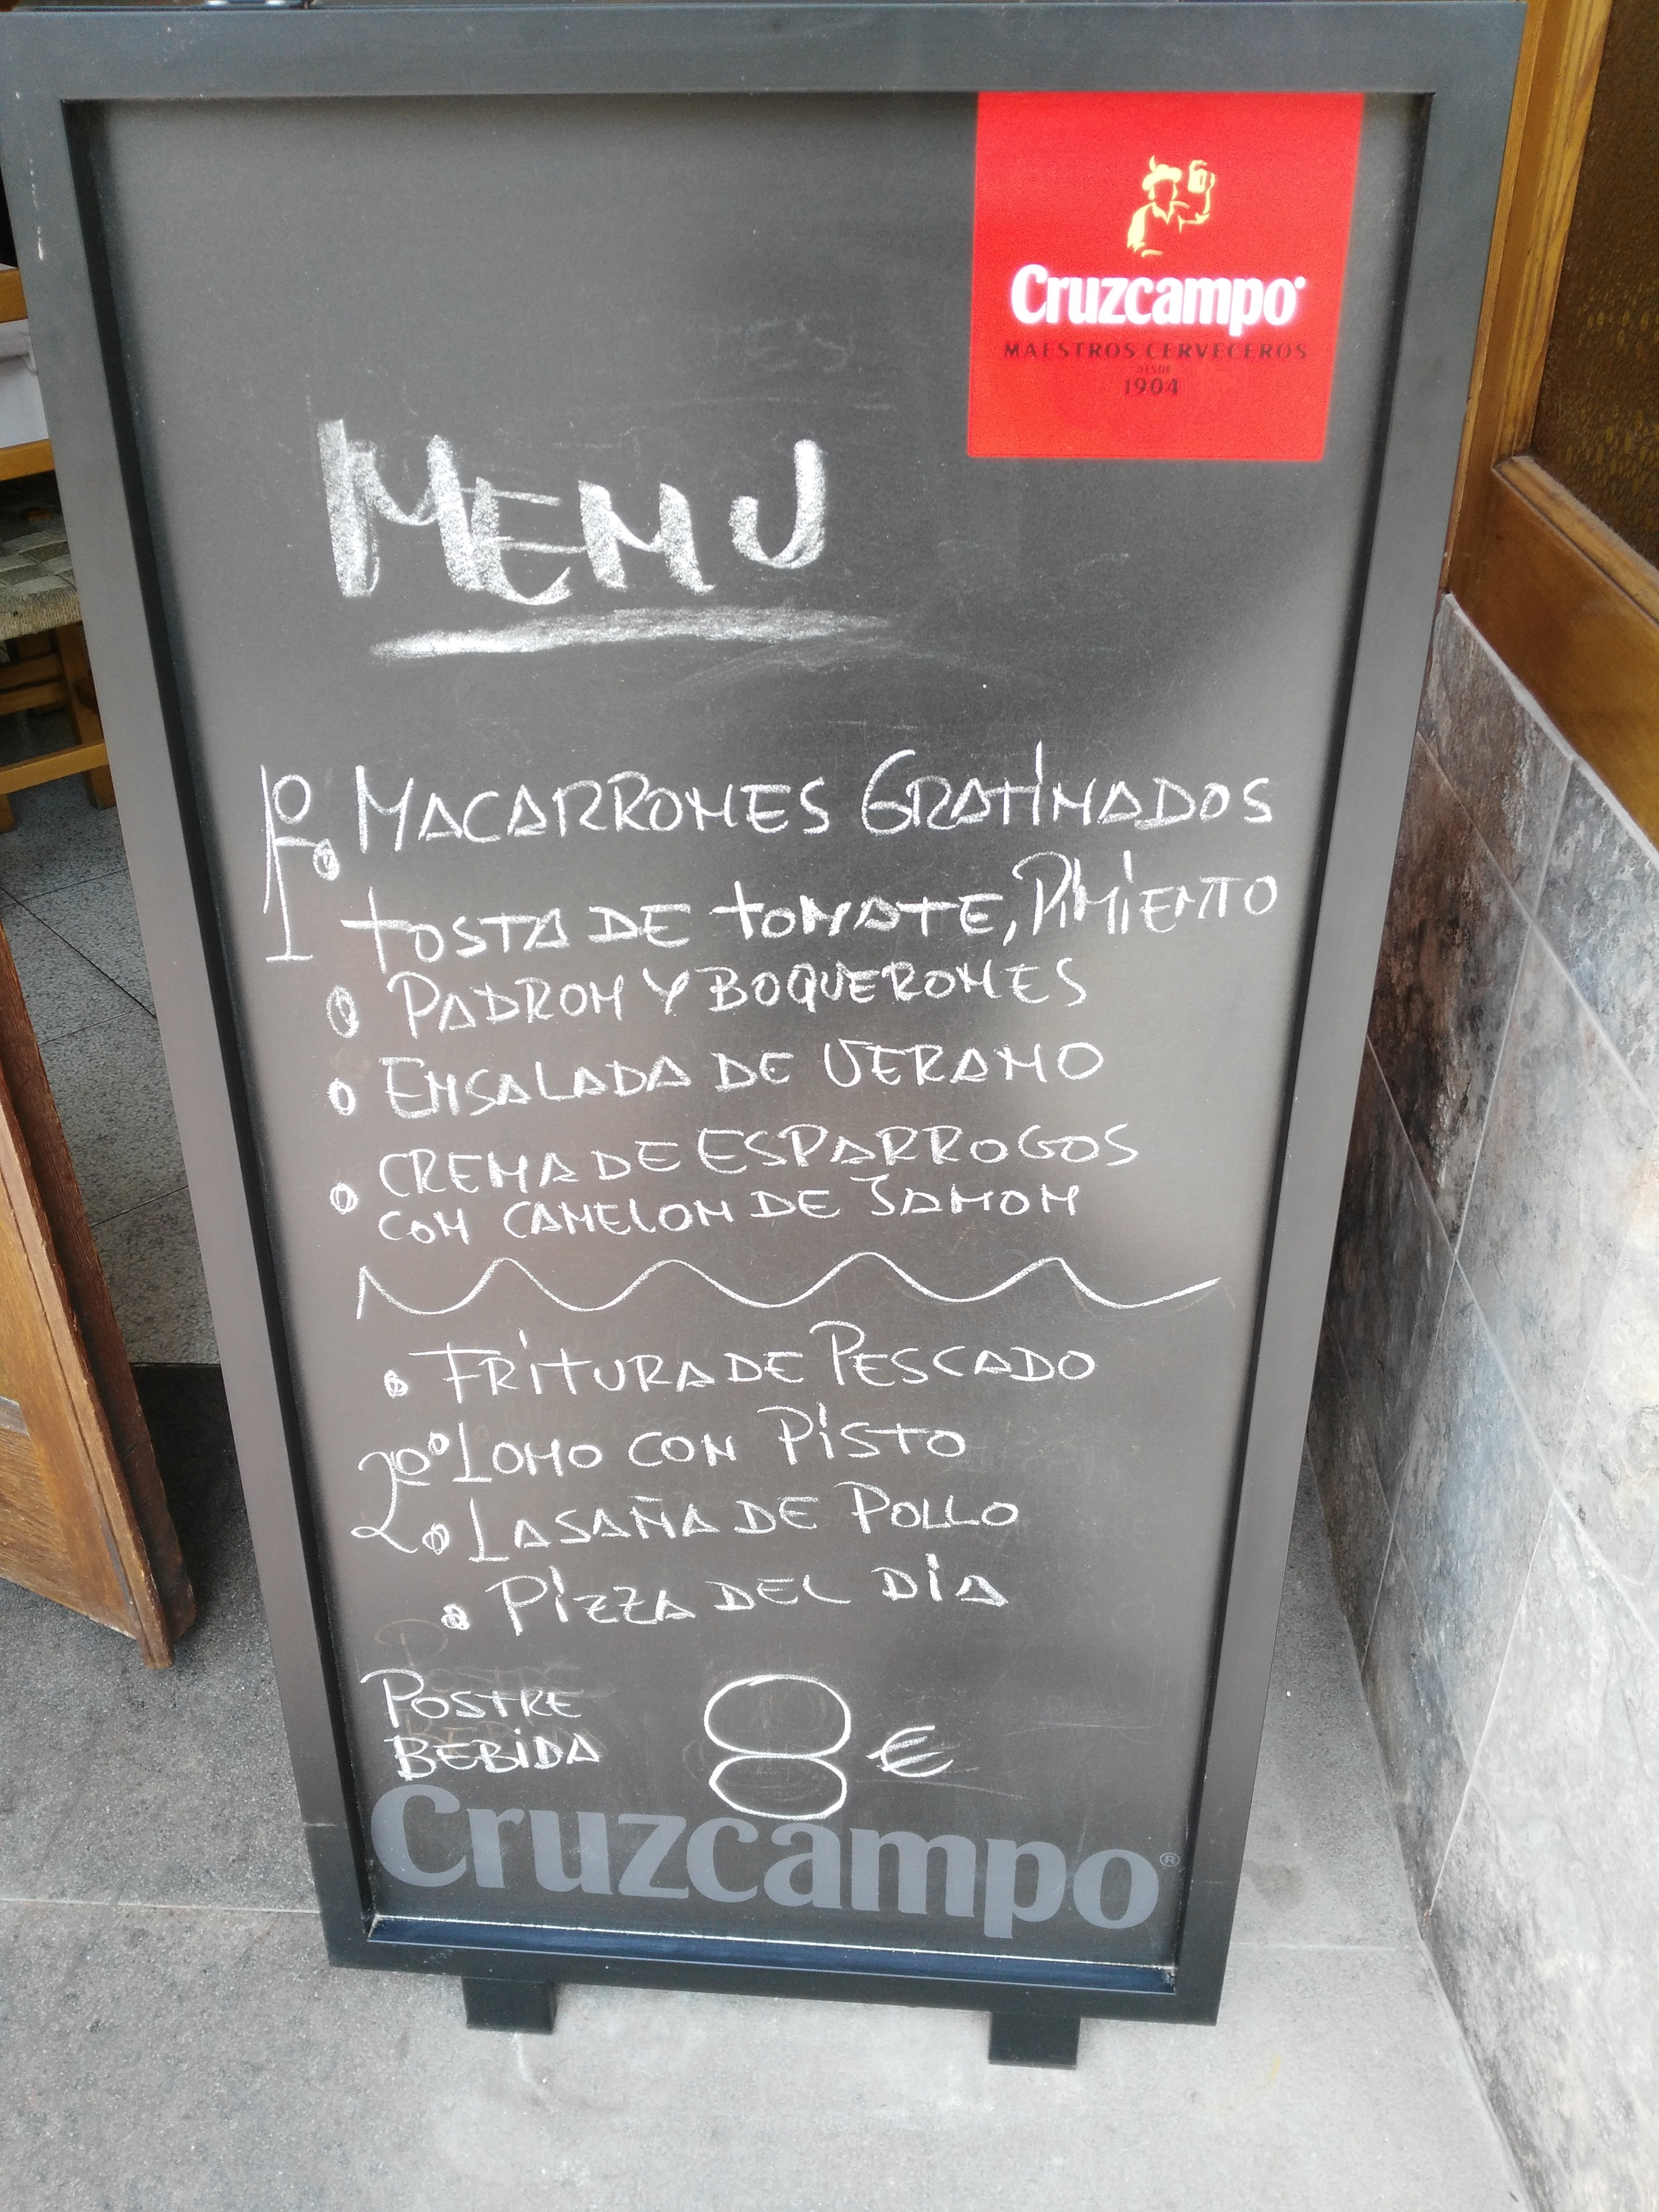 Cruzcampo
MAESTROS CERVECEROS
DESDE
1904
MENU
1º MACARRONES GRATINADOS
TOSTA DE TOMATE, PIMIENTO
PADRON Y BOQUERONES
ENSALADA DE VERANO
CREMA DE ESPARROGOS
CON CANELON DE JAMON
FRITURA DE PESCADO
2º LOMO CON PISTO
LASAÑA DE POLLO
PIZZA DEL DIA
POSTRE
BEBIDA 8 €
Cruzcampo®